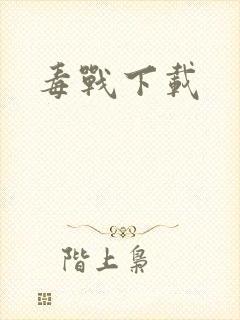 毒戰下載
階上梟